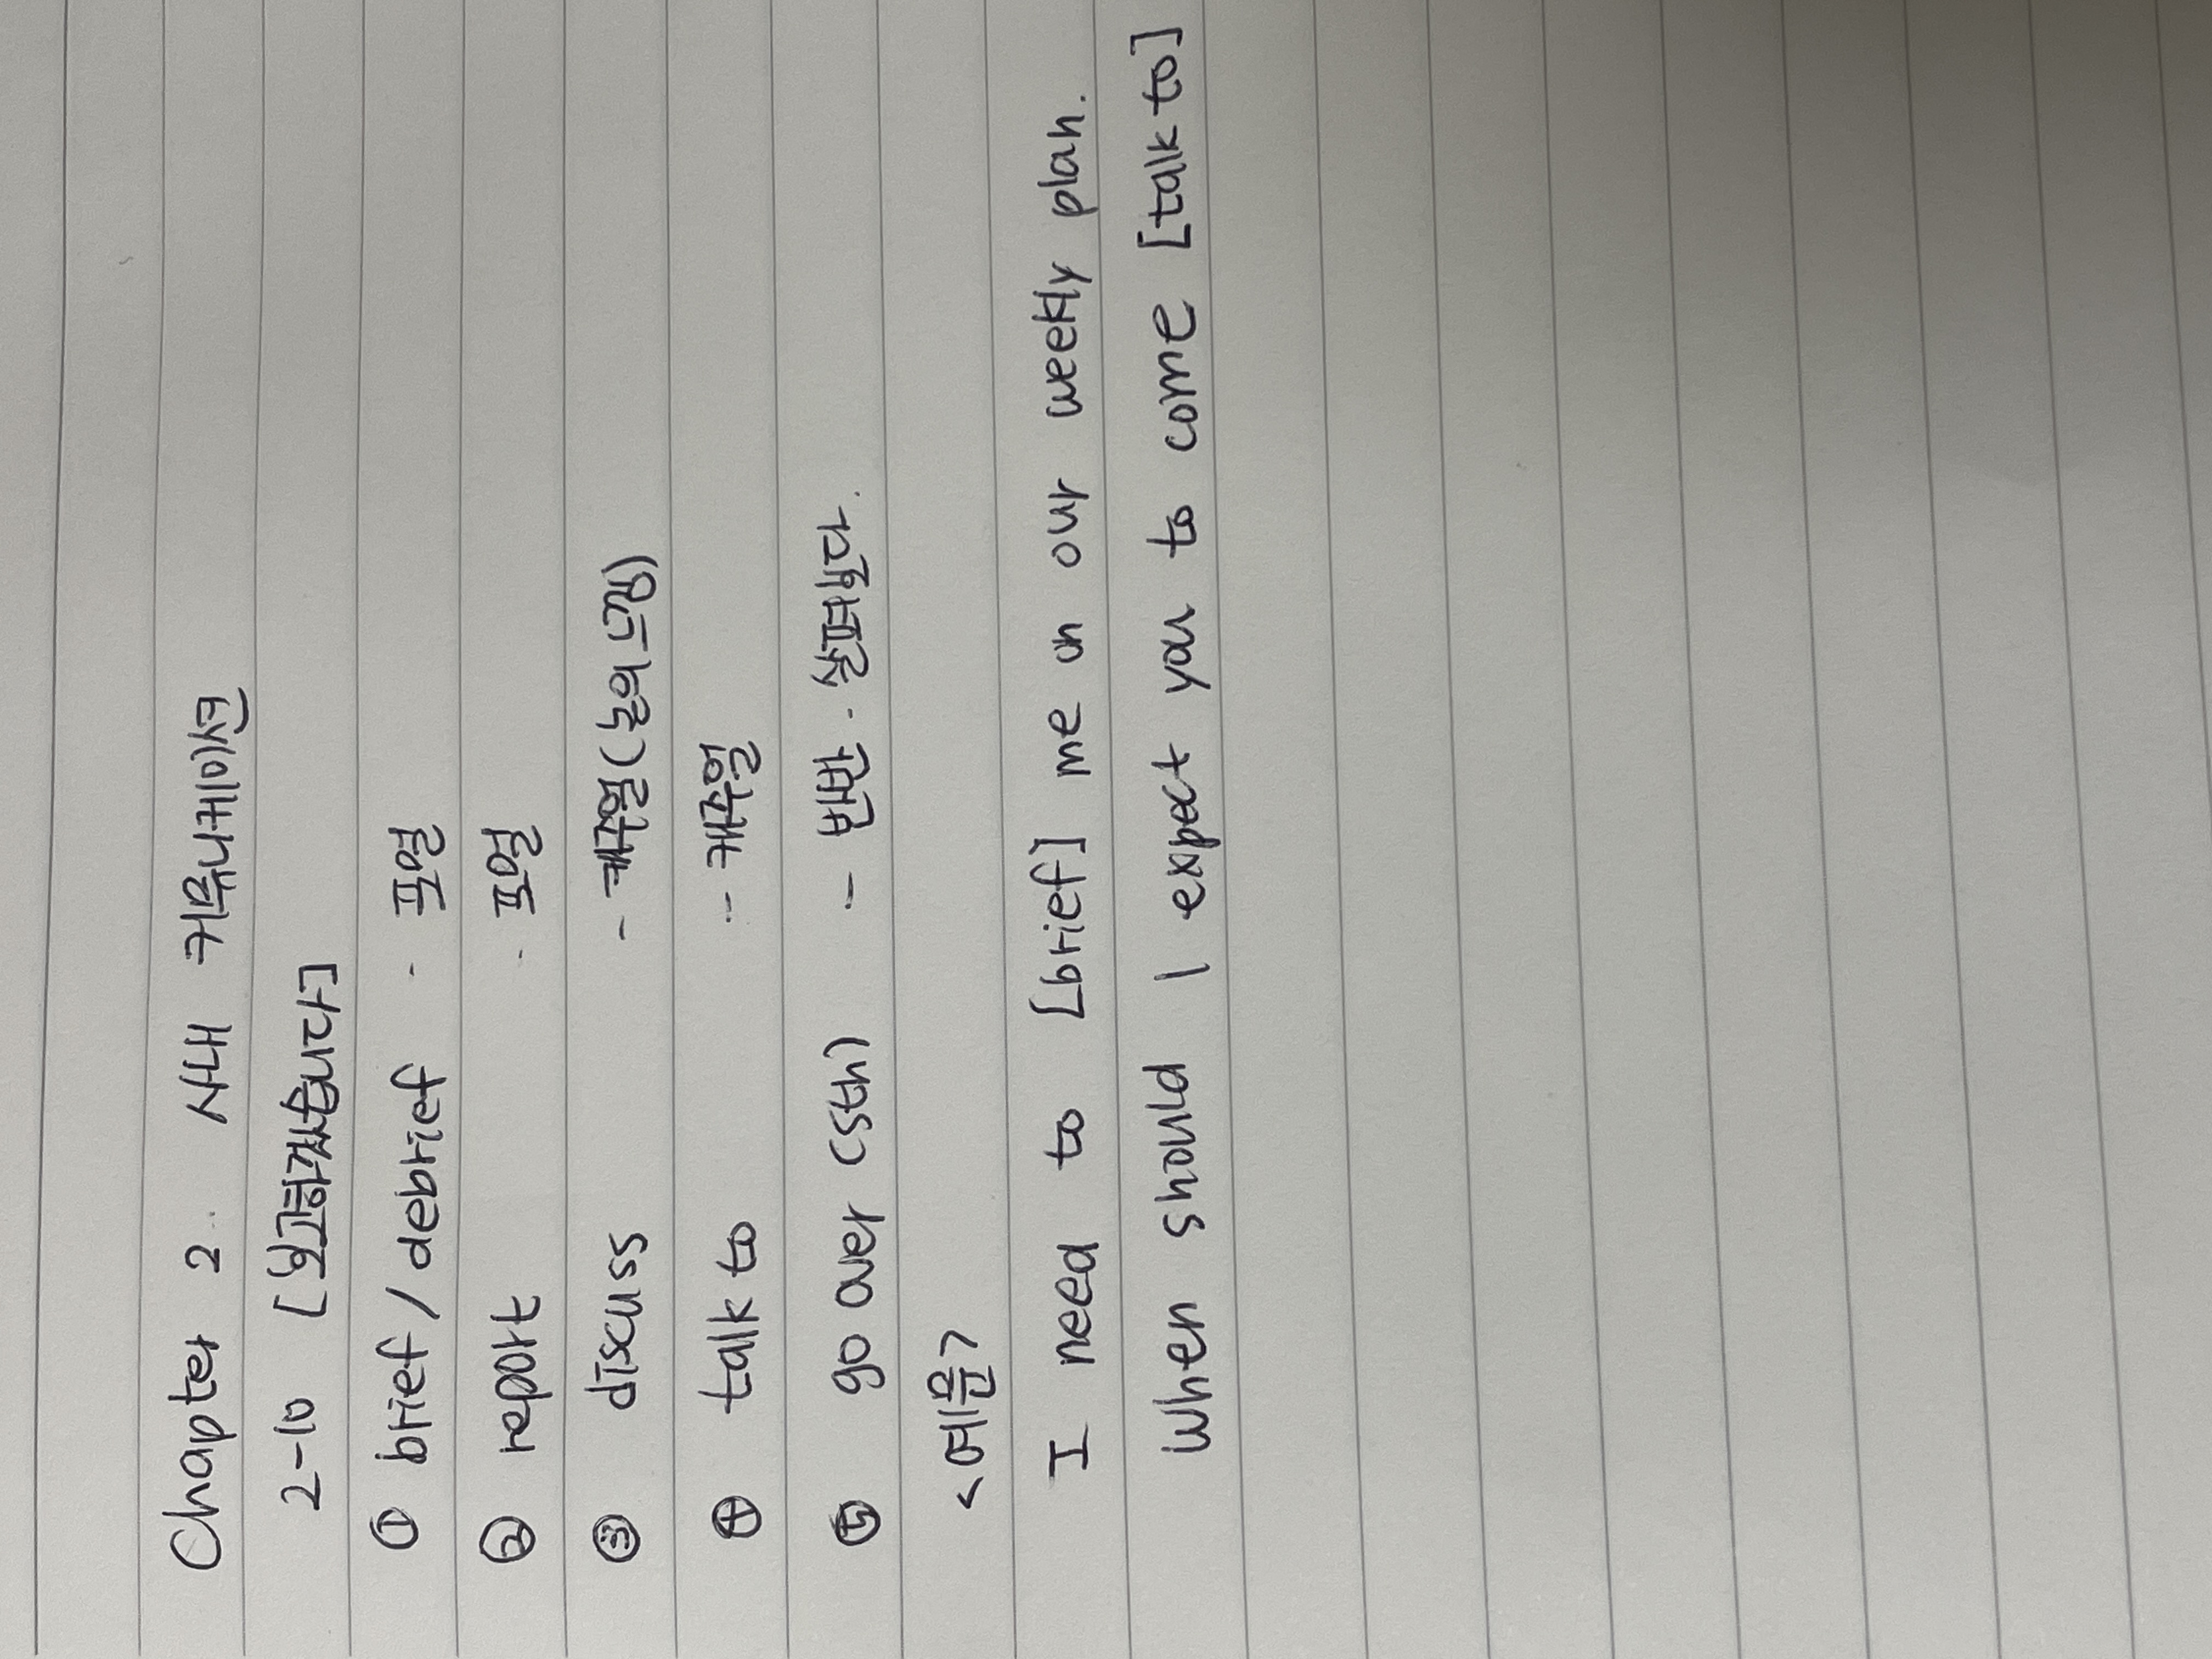 Chapter 2. 사내 커뮤니케이션
2-10 [보고할게요입니다]
① brief / debrief · 포멀
② report · 포멀
③ discuss - 캐주얼(논의느낌)
④ talk to - 캐주얼
⑤ go over (sth) - 빠르게 · 훑어보다.
<예문>
I need to [brief] me on our weekly plan.
When should I expect you to come [talk to]